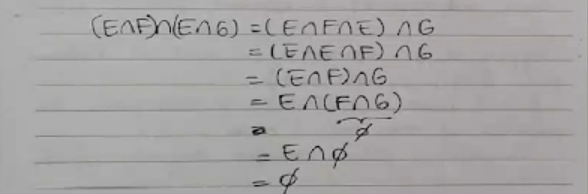 (E∩F)∩(E∩G) = (E∩F∩E) ∩G
= (E∩E∩F) ∩G
= (E∩F)∩G
= E∩(F∩G)
= ϕ
= E∩ϕ
= ϕ